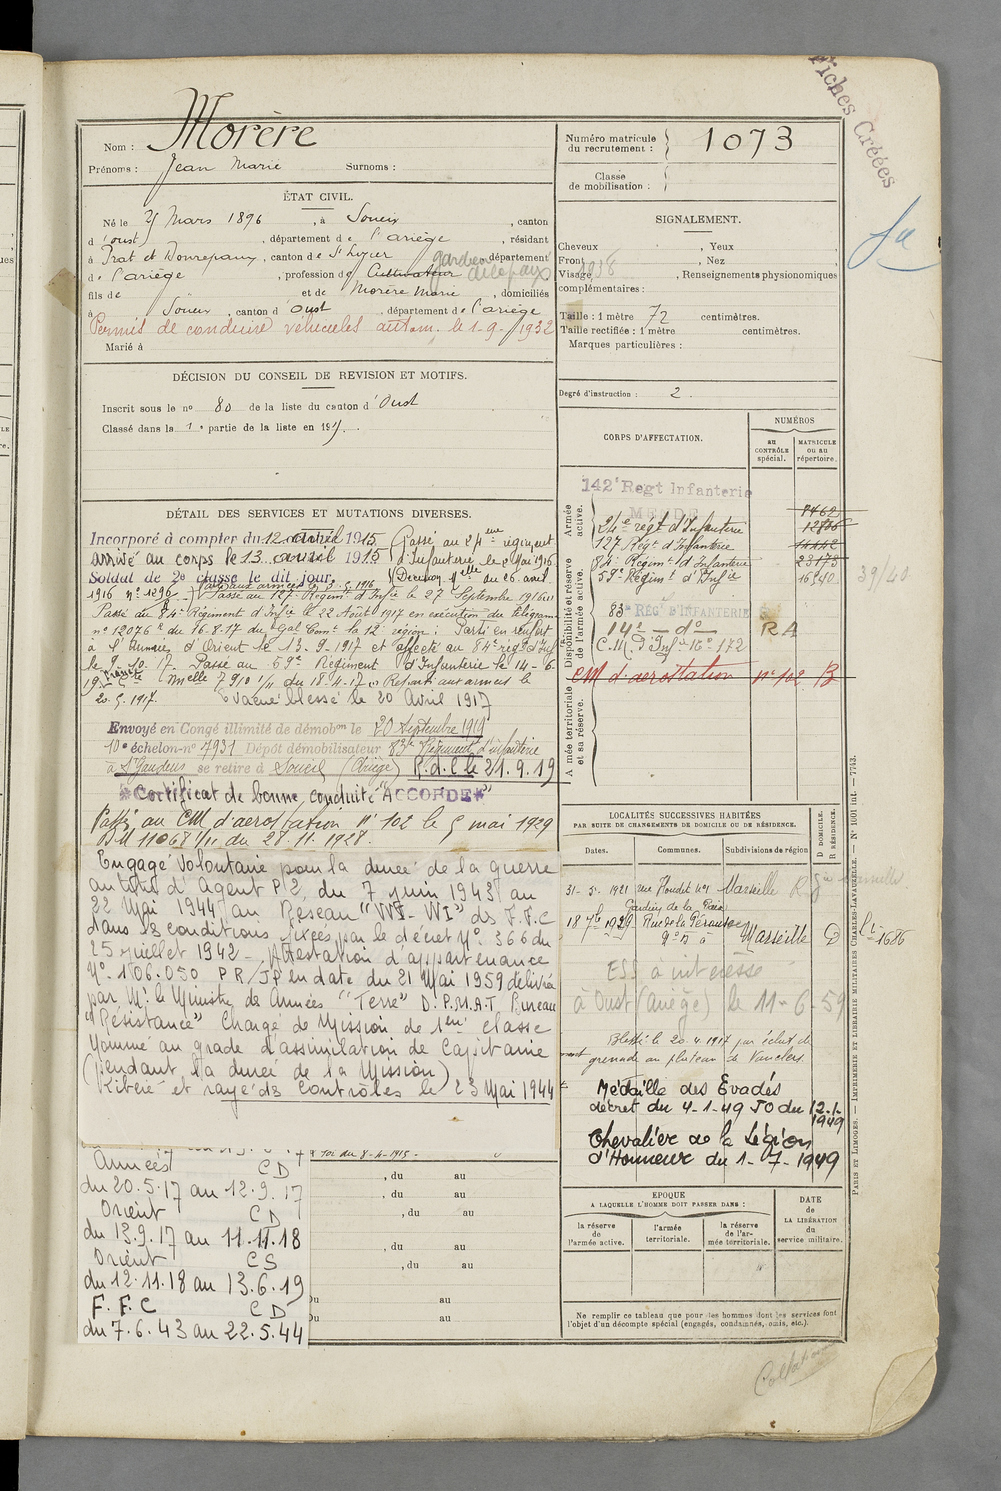 Fiches Créées
Nom : Morère
Prénoms : Jean Marie Surnoms :
Numéro matricule du recrutement : 1073
Classe de mobilisation :
ÉTAT CIVIL.
Né le 25 Mars 1896, à Soueix, canton
d'oust, département de l'ariège, résidant
à Prat et Bonrepaux, canton de St Lizier, département
de l'ariège, profession de Cultivateur gardien de la paix
fils de et de Morère Marie, domiciliés
à Soueix, canton d'Oust, département de l'ariège
Permis de conduire véhicules autom. le 1-9-1932
Marié à
SIGNALEMENT.
Cheveux , Yeux ,
Front , Nez ,
Visage , Renseignements physionomiques
complémentaires :
1938
Taille : 1 mètre 72 centimètres.
Taille rectifiée : 1 mètre centimètres.
Marques particulières :
Degré d'instruction : 2.
DÉCISION DU CONSEIL DE REVISION ET MOTIFS.
Inscrit sous le no 80 de la liste du canton d'Oust
Classé dans la 1e partie de la liste en 1915.
DÉTAIL DES SERVICES ET MUTATIONS DIVERSES.
Incorporé à compter du 12 avril 1915
arrivé au corps le 13 avril 1915
Soldat de 2e classe le dit jour.
Passé au 24ème régiment
d'Infanterie le 2 Mai 1916
Décision Mlle du 26 avril
1916 no 1296. Passé au 127e Régiment d'Infie le 27 Septembre 1916
Passé au 84e Régiment d'Infie le 22 Août 1917 en exécution du télégram
no 12076 du 16.8.17 du Gal Comt la 12e région : Parti en renfort
à l'Armée d'Orient le 13-9-1917 et affecté au 84e régt d'Inf
le 9-10-17 Passé au 59e Régiment d'Infanterie le 14-6-
19. Melle 7910 du 18-4-17 Reparti aux armées le
20.5.1917. Evacué blessé le 20 Avril 1917
Envoyé en Congé illimité de démobon le 20 Septembre 1919
10e échelon no 7931 Dépôt démobilisateur 83e Régiment d'infanterie
à St Gaudens se retire à Soueix (Ariège) R.d.C le 21.9.19
Certificat de bonne conduite "ACCORDÉ"
Passé au CM d'aérostation No 102 le 5 mai 1929
DM 11068 1/11 du 28.11.1928.
Engagé Volontaire pour la durée de la guerre
au titre d'Agent P2, du 7 juin 1943 au
22 Mai 1944 au Réseau "WI-WI" des F.F.C
dans les conditions fixées par le décret No 366 du
25 juillet 1942 - Attestation d'appartenance
No 1.06.050 PR/JP en date du 21 Mai 1959 délivrée
par Mr le Ministre des Armées "Terre" D.P.M.A.T Bureau
"Résistance" Chargé de Mission de 1ère classe
Nommé au grade d'assimilation de Capitaine
(pendant la durée de la Mission)
Libéré et rayé des Contrôles le 23 Mai 1944
loi du 8-4-1915.
Armées CD
du 20.5.17 au 12.9.17
Orient CD
du 13.9.17 au 11.11.18
Orient CS
du 12.11.18 au 13.6.19
F.F.C CD
du 7.6.43 au 22.5.44
, du au
, du au
, du au
, du au
, du au
Du au
Du au
CORPS D'AFFECTATION.
NUMÉROS
au CONTRÔLE spécial.
MATRICULE ou au répertoire.
Armée active.
Disponibilité et réserve de l'armée active.
Armée territoriale et sa réserve.
142e Regt Infanterie
MENDE
24e régt d'Infanterie
127 Régt d'Infanterie
84e Régimt d'Infanterie 23173
59e Régimt d'Infie 16240
39/40
83e RÉGt D'INFANTERIE
14e — do — RA
CM d'aérostation No 102 B
LOCALITÉS SUCCESSIVES HABITÉES
PAR SUITE DE CHANGEMENTS DE DOMICILE OU DE RÉSIDENCE.
Dates. Communes. Subdivisions de région
D DOMICILE. R RÉSIDENCE.
31-3-1921 rue Houdet no 1 Marseille R
Gardien de la Paix
18 7bre 1929 Marseille D
ESS à intéressé
à Oust (Ariège) le 11-6-59
Blessé le 20.4.1917 par éclat de
grenade au plateau de Vauclerc
Médaille des Evadés
décret du 4-1-49 JO du 12-1-1949
Chevalier de la Légion
d'Honneur du 1-7-1949
EPOQUE
A LAQUELLE L'HOMME DOIT PASSER DANS :
la réserve de l'armée active.
l'armée territoriale.
la réserve de l'armée territoriale.
DATE de LA LIBÉRATION du service militaire.
Ne remplir ce tableau que pour les hommes dont les services font
l'objet d'un décompte spécial (engagés, condamnés, omis, etc.).
PARIS ET LIMOGES. — IMPRIMERIE ET LIBRAIRIE MILITAIRES CHARLES-LAVAUZELLE. — No 1001 int. — 7743.